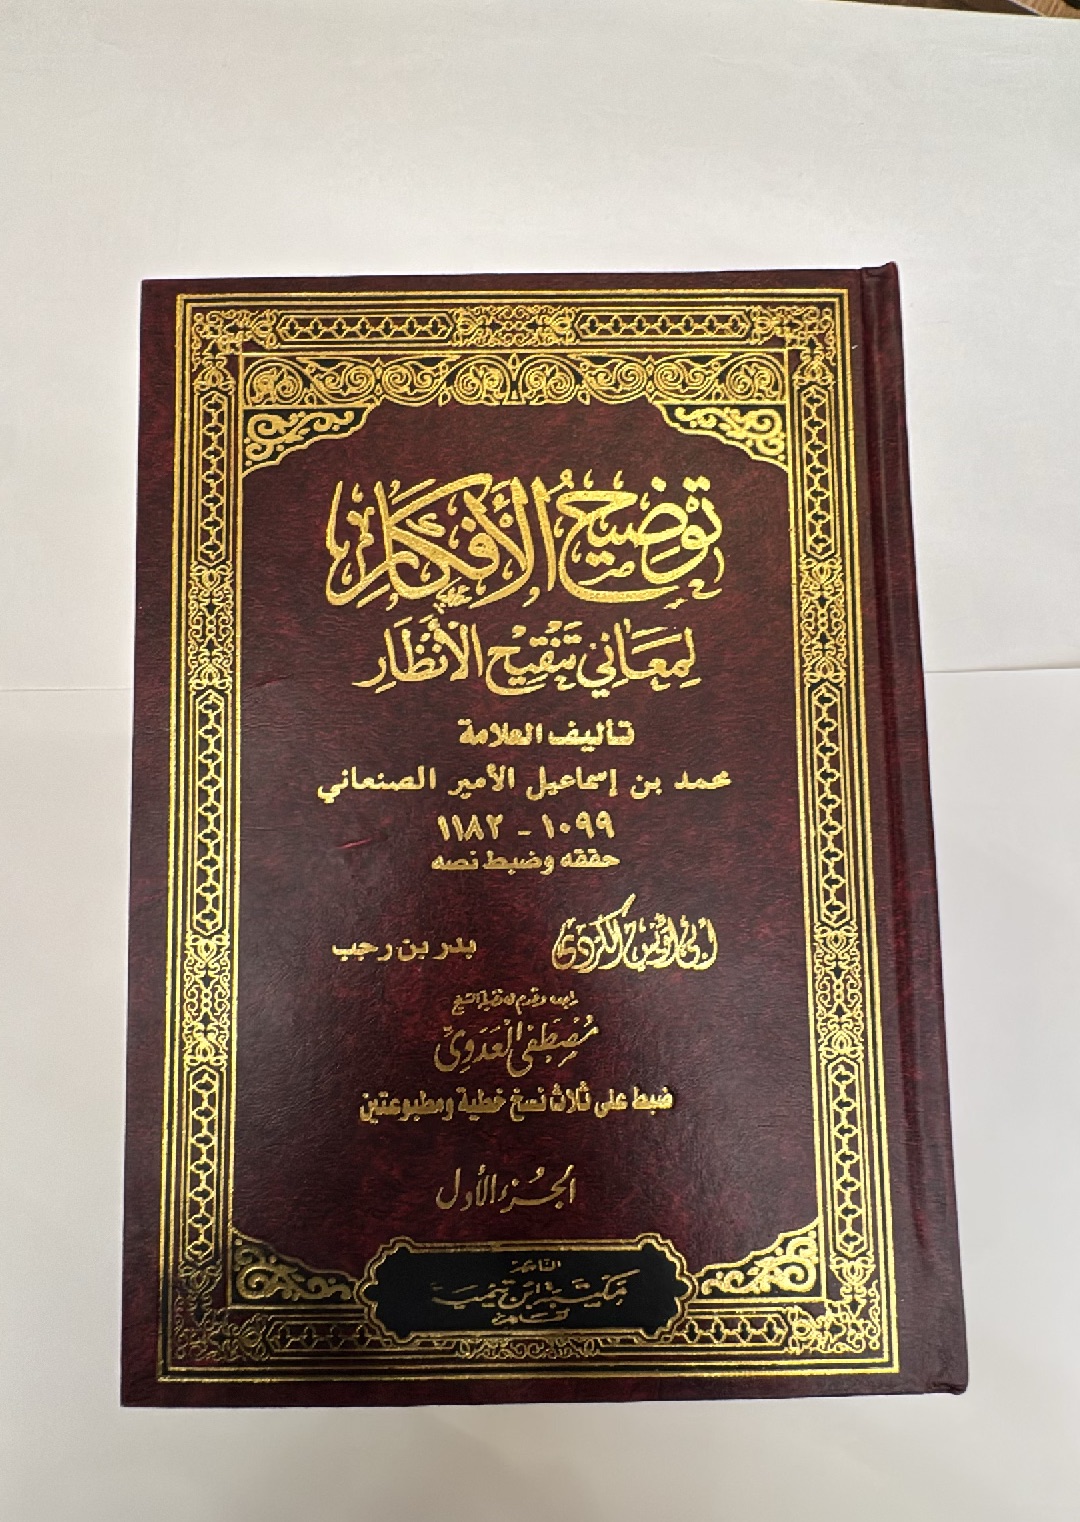 توضيح الأفكار
لمعاني تنقيح الأنظار
تأليف العلامة
محمد بن إسماعيل الأمير الصنعاني
١٠٩٩ - ١١٨٢
حققه وضبط نصه
أبي أويس الكردي بدر بن رجب
راجعه وقدم له فضيلة الشيخ
مصطفى العدوي
ضبط على ثلاث نسخ خطية ومطبوعتين
الجزء الأول
الناشر
مكتبة ابن تيمية
القاهرة